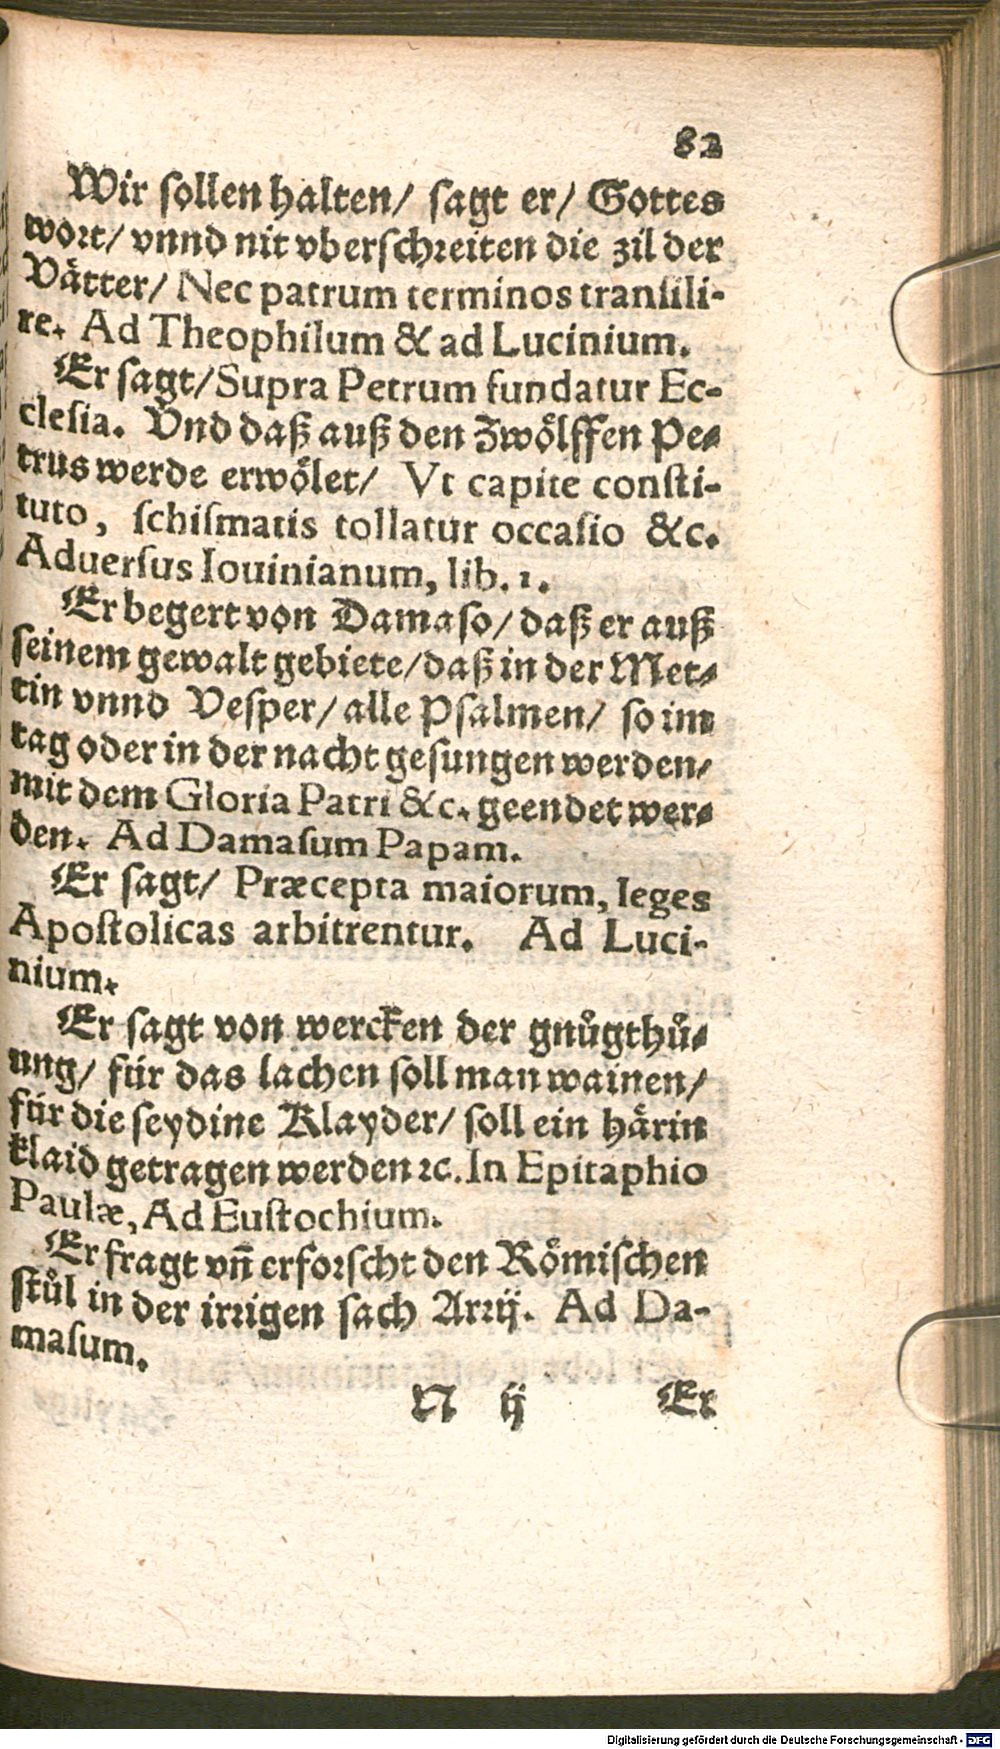 82
Wir sollen halten/ sagt er/ Gottes
wort/ vnnd nit vberschreiten die zil der
Vätter/ Nec patrum terminos transili-
re. Ad Theophilum & ad Lucinium.
Er sagt/ Supra Petrum fundatur Ec-
clesia. Vnd daß auß den Zwölffen Pe-
trus werde erwölet/ Vt capite consti-
tuto, schismatis tollatur occasio &c.
Aduersus Iouinianum, lib. 1.
Er begert von Damaso/ daß er auß
seinem gewalt gebiete/ daß in der Met-
tin vnnd Vesper/ alle Psalmen/ so im
tag oder in der nacht gesungen werden/
mit dem Gloria Patri &c. geendet wer-
den. Ad Damasum Papam.
Er sagt/ Præcepta maiorum, leges
Apostolicas arbitrentur. Ad Luci-
nium.
Er sagt von wercken der gnůgthů-
ung/ für das lachen soll man wainen/
für die seydine Klayder/ soll ein härin
klaid getragen werden ꝛc. In Epitaphio
Paulæ, Ad Eustochium.
Er fragt vñ erforscht den Römischen
stůl in der irrigen sach Arrij. Ad Da-
masum.
N ij Er
Digitalisierung gefördert durch die Deutsche Forschungsgemeinschaft - DFG